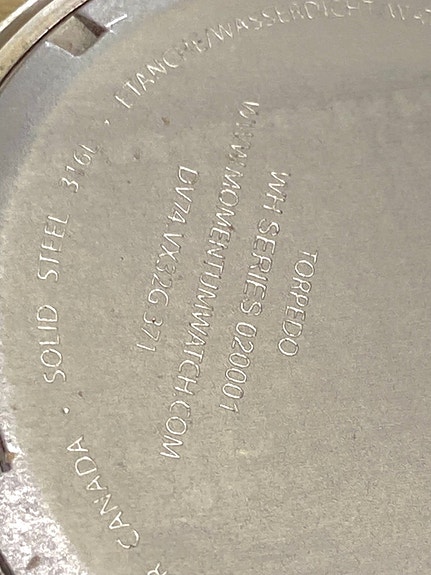 TORPEDO
WH SERIES 020001
WWW.MOMENTUMWATCH.COM
DV74.VX32G 371
CANADA . SOLID STEEL 316L . ETANCHE/WASSERDICHT